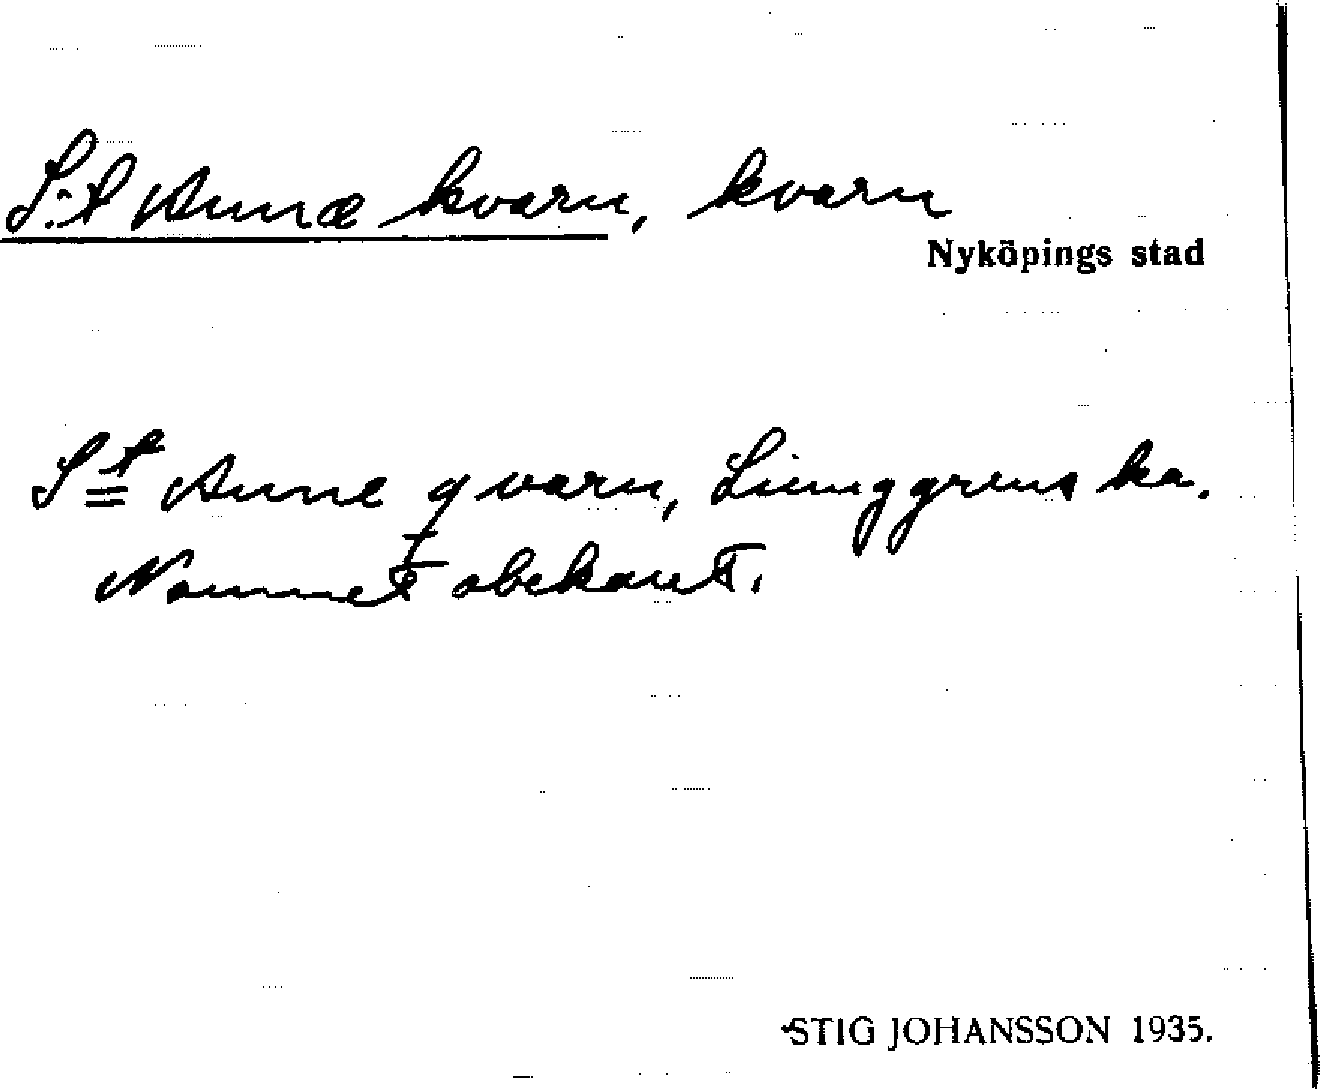 S:t Annæ kvarn, kvarn
Nyköpings stad
St Anne qvarn, Liunggrenska.
Namnet obekant.
STIG JOHANSSON 1935.